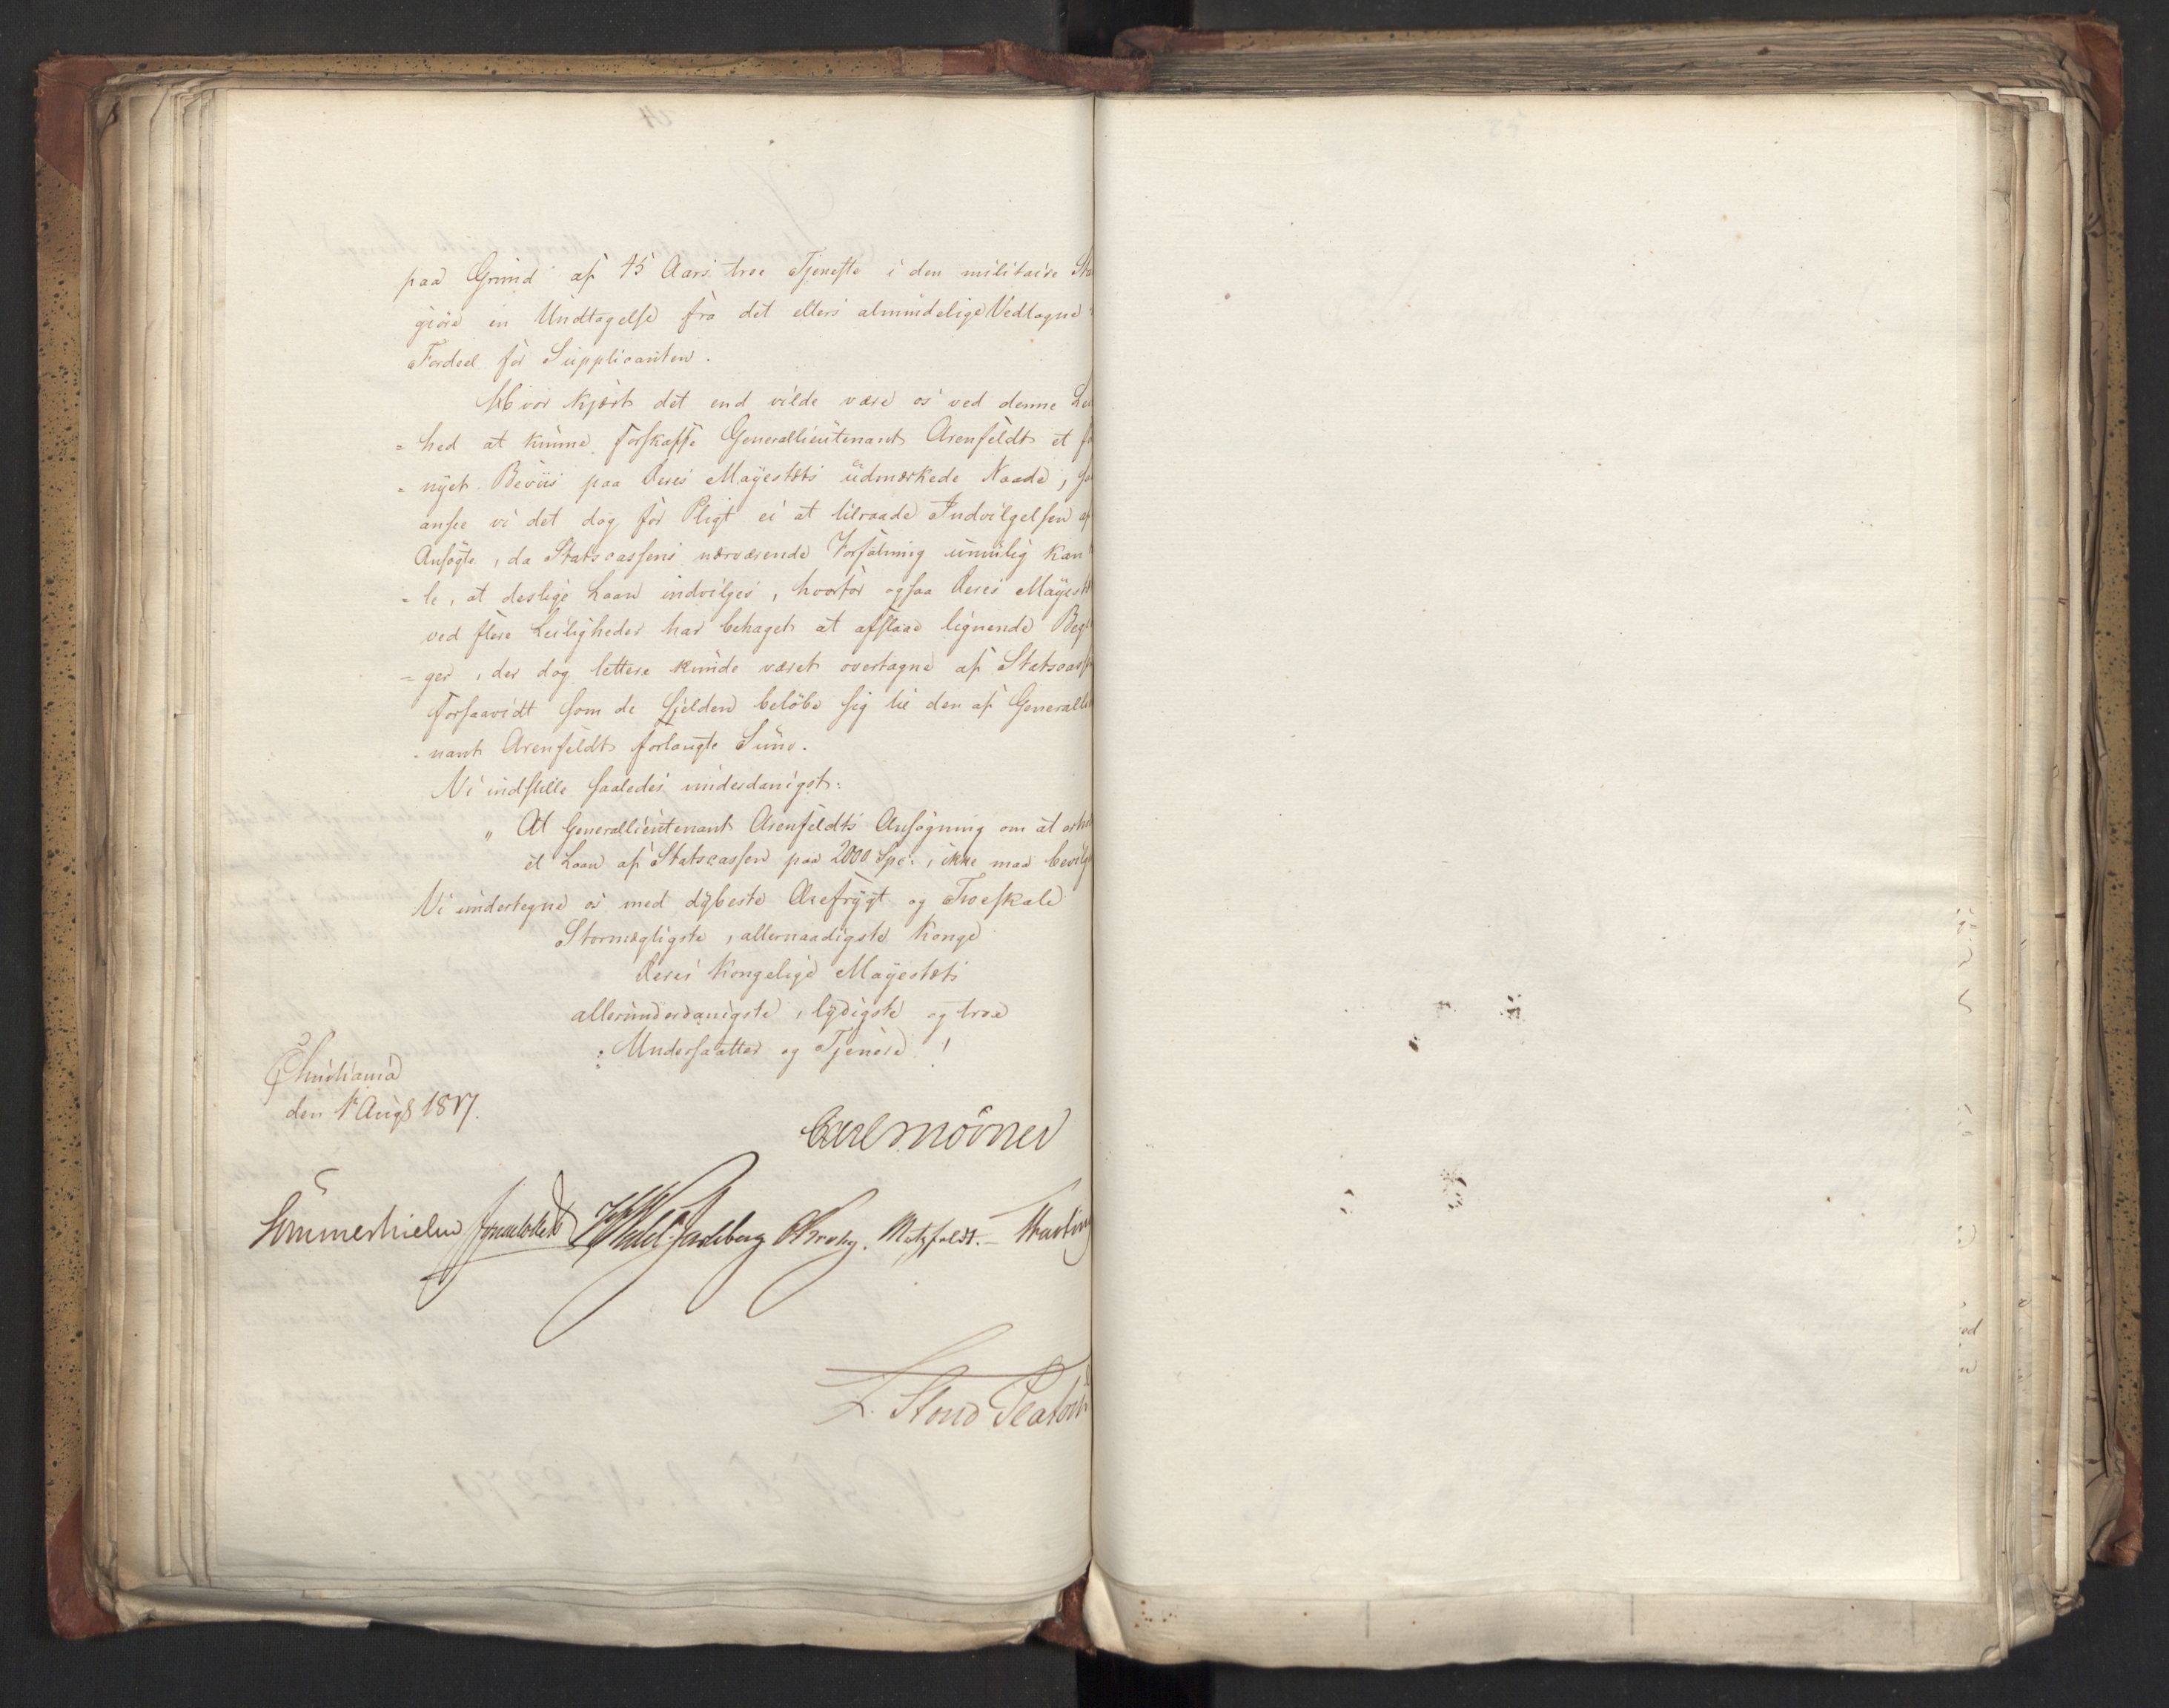 paa Grund af 45 Aars troe Tjeneste i den militaire
giöre en Undtagelse fra det ellers almindelige Vedtagne
Fordeel for Supplicanten.
Hvor kjært det end vilde være os ved denne
=hed at kunne forskaffe Generallieutenant Arenfeldt et
=nyet Beviis paa Deres Mayestets udmærkede Naade,
ansee vi det dog for Pligt ei at tilraade Indvilgelsen af
Ansögte, da Statscassens nærværende Forfatning umulig kan
=le, at deslige Laan indvilges, hvorfor ogsaa Deres Mayest
ved flere Leiligheder har behaget at afslaae lignende Beg
=ger, der dog lettere kunde været overtagne af Statscass
forsaavidt som de sjelden belöbe sig til den af Generallie
=nant Arenfeldt forlangte Sum.
Vi indstille saaledes underdanigst:
" At Generallieutenant Arenfeldts Ansögning om at erh
et Laan af Statscassen paa 2000 Spc:, ikke maa bevilg
Vi undertegne os med dybeste Ærefrygt og Troeskab
Stormægtigste, allernaadigste Konge
Deres Kongelige Mayestets
allerunderdanigste, lydigste og troe
Undersaatter og Tjenere!
Christiania
den 1ste Augs 1817.
Carl Mörner
Sommerhielm Wedel-Jarlsberg Krohg. Motzfeldt.
L. Stoud Platou